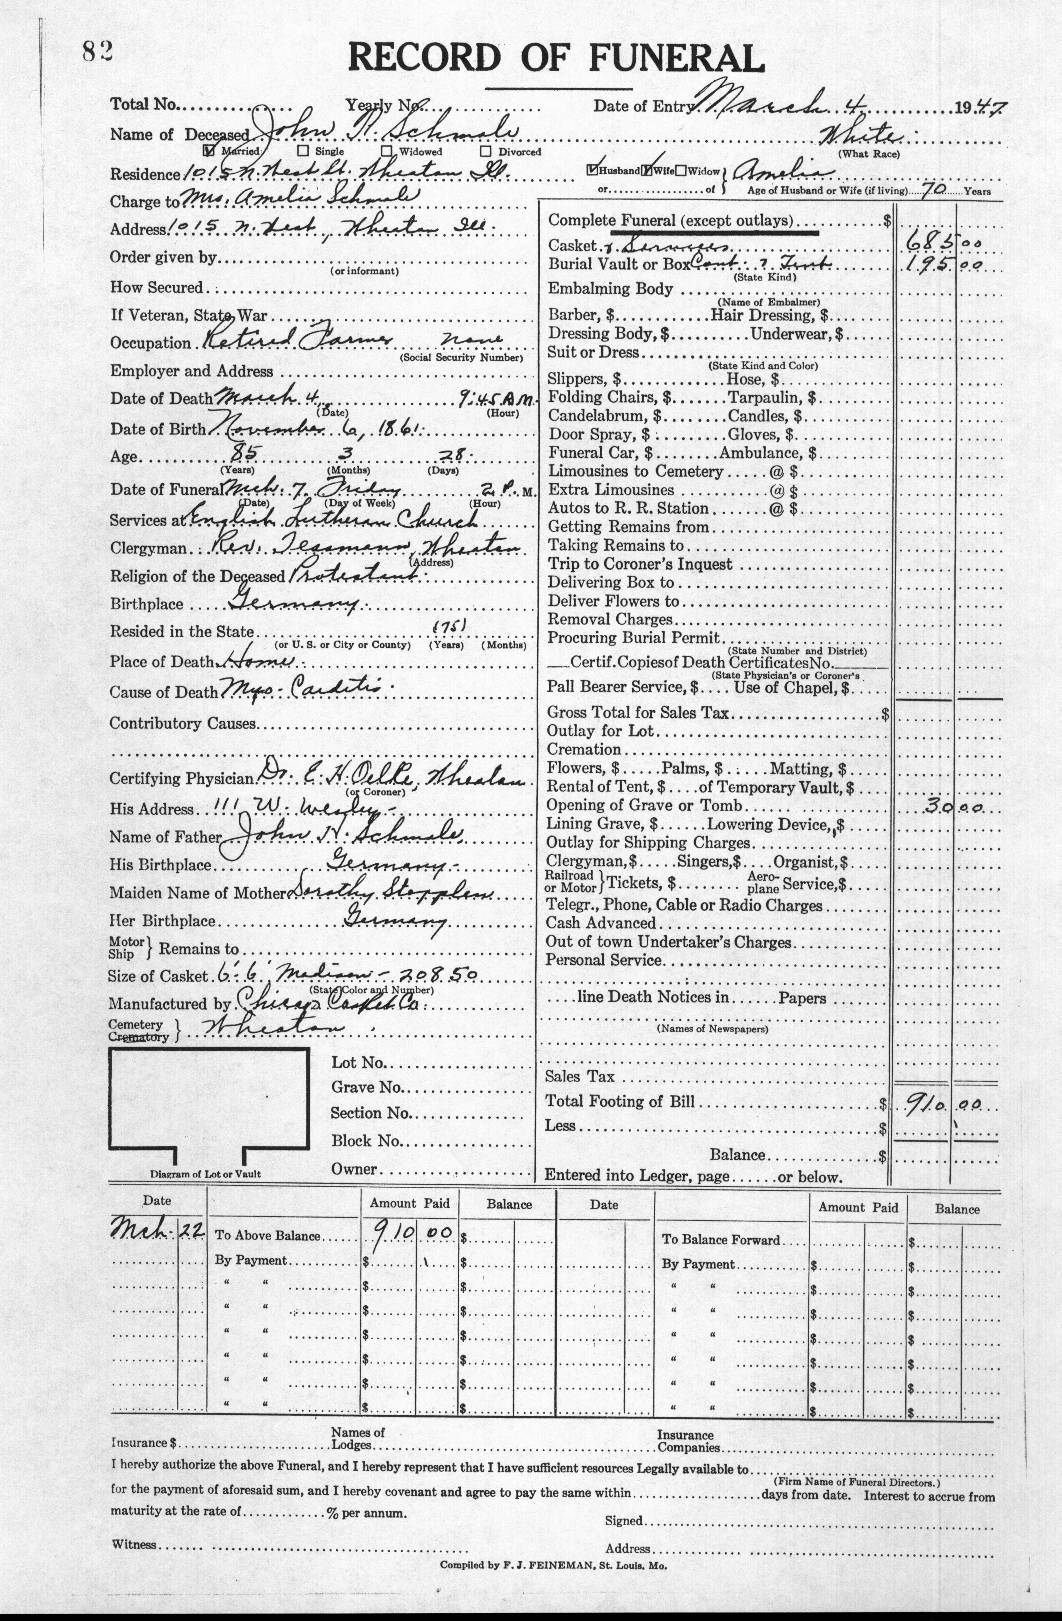 82
RECORD OF FUNERAL
Total No. Yearly No. Date of Entry March 4 1947
Name of Deceased John H. Schmale White
Married Single Widowed Divorced (What Race)
Residence 1015 N. West St. Wheaton Ill. Husband Wife Widow } Amelia
or of } Age of Husband or Wife (if living) 70 Years
Charge to Mrs. Amelia Schmale
Address 1015 N. West, Wheaton Ill.
Order given by
(or informant)
How Secured
If Veteran, State War
Occupation Retired Farmer none
(Social Security Number)
Employer and Address
Date of Death March 4, 9:45 A.M.
(Date) (Hour)
Date of Birth November 6, 1861
Age 85 3 28
(Years) (Months) (Days)
Date of Funeral Mch. 7, Friday 2 P. M.
(Date) (Day of Week) (Hour)
Services at English Lutheran Church
Clergyman Rev. Tessmann, Wheaton
(Address)
Religion of the Deceased Protestant
Birthplace Germany
Resided in the State (75)
(or U. S. or City or County) (Years) (Months)
Place of Death Home
Cause of Death Myo-Carditis
Contributory Causes
Certifying Physician Dr. E. H. Oelke, Wheaton
(or Coroner)
His Address 111 W. Wesley
Name of Father John H. Schmale
His Birthplace Germany
Maiden Name of Mother Dorothy
Her Birthplace Germany
Motor Ship } Remains to
Size of Casket 6'6" Madison - 20850
(State Color and Number)
Manufactured by Chicago Casket Co.
Cemetery
Crematory } Wheaton
Lot No.
Grave No.
Section No.
Block No.
Owner
Diagram of Lot or Vault
Complete Funeral (except outlays) $
Casket & Services 685 00
Burial Vault or Box Cont. & Tent 195 00
(State Kind)
Embalming Body
(Name of Embalmer)
Barber, $ Hair Dressing, $
Dressing Body, $ Underwear, $
Suit or Dress
(State Kind and Color)
Slippers, $ Hose, $
Folding Chairs, $ Tarpaulin, $
Candelabrum, $ Candles, $
Door Spray, $ Gloves, $
Funeral Car, $ Ambulance, $
Limousines to Cemetery @ $
Extra Limousines @ $
Autos to R. R. Station @ $
Getting Remains from
Taking Remains to
Trip to Coroner's Inquest
Delivering Box to
Deliver Flowers to
Removal Charges
Procuring Burial Permit
(State Number and District)
Certif. Copies of Death Certificates No.
(State Physician's or Coroner's
Pall Bearer Service, $ Use of Chapel, $
Gross Total for Sales Tax $
Outlay for Lot
Cremation
Flowers, $ Palms, $ Matting, $
Rental of Tent, $ of Temporary Vault, $
Opening of Grave or Tomb 30 00
Lining Grave, $ Lowering Device, $
Outlay for Shipping Charges
Clergyman, $ Singers, $ Organist, $
Railroad or Motor } Tickets, $ Aeroplane Service, $
Telegr., Phone, Cable or Radio Charges
Cash Advanced
Out of town Undertaker's Charges
Personal Service
line Death Notices in Papers
(Names of Newspapers)
Sales Tax
Total Footing of Bill $ 910 00
Less $
Balance $
Entered into Ledger, page or below.
Date Amount Paid Balance Date Amount Paid Balance
Mch. 22 To Above Balance 910 00 $ To Balance Forward $
By Payment $ $ By Payment $ $
" " $ $ " " $ $
" " $ $ " " $ $
" " $ $ " " $ $
" " $ $ " " $ $
" " $ $ " " $ $
" " $ $ " " $ $
Insurance $ Names of Lodges Insurance Companies
I hereby authorize the above Funeral, and I hereby represent that I have sufficient resources Legally available to
(Firm Name of Funeral Directors.)
for the payment of aforesaid sum, and I hereby covenant and agree to pay the same within days from date. Interest to accrue from
maturity at the rate of % per annum.
Signed
Witness Address
Compiled by F. J. FEINEMAN, St. Louis, Mo.